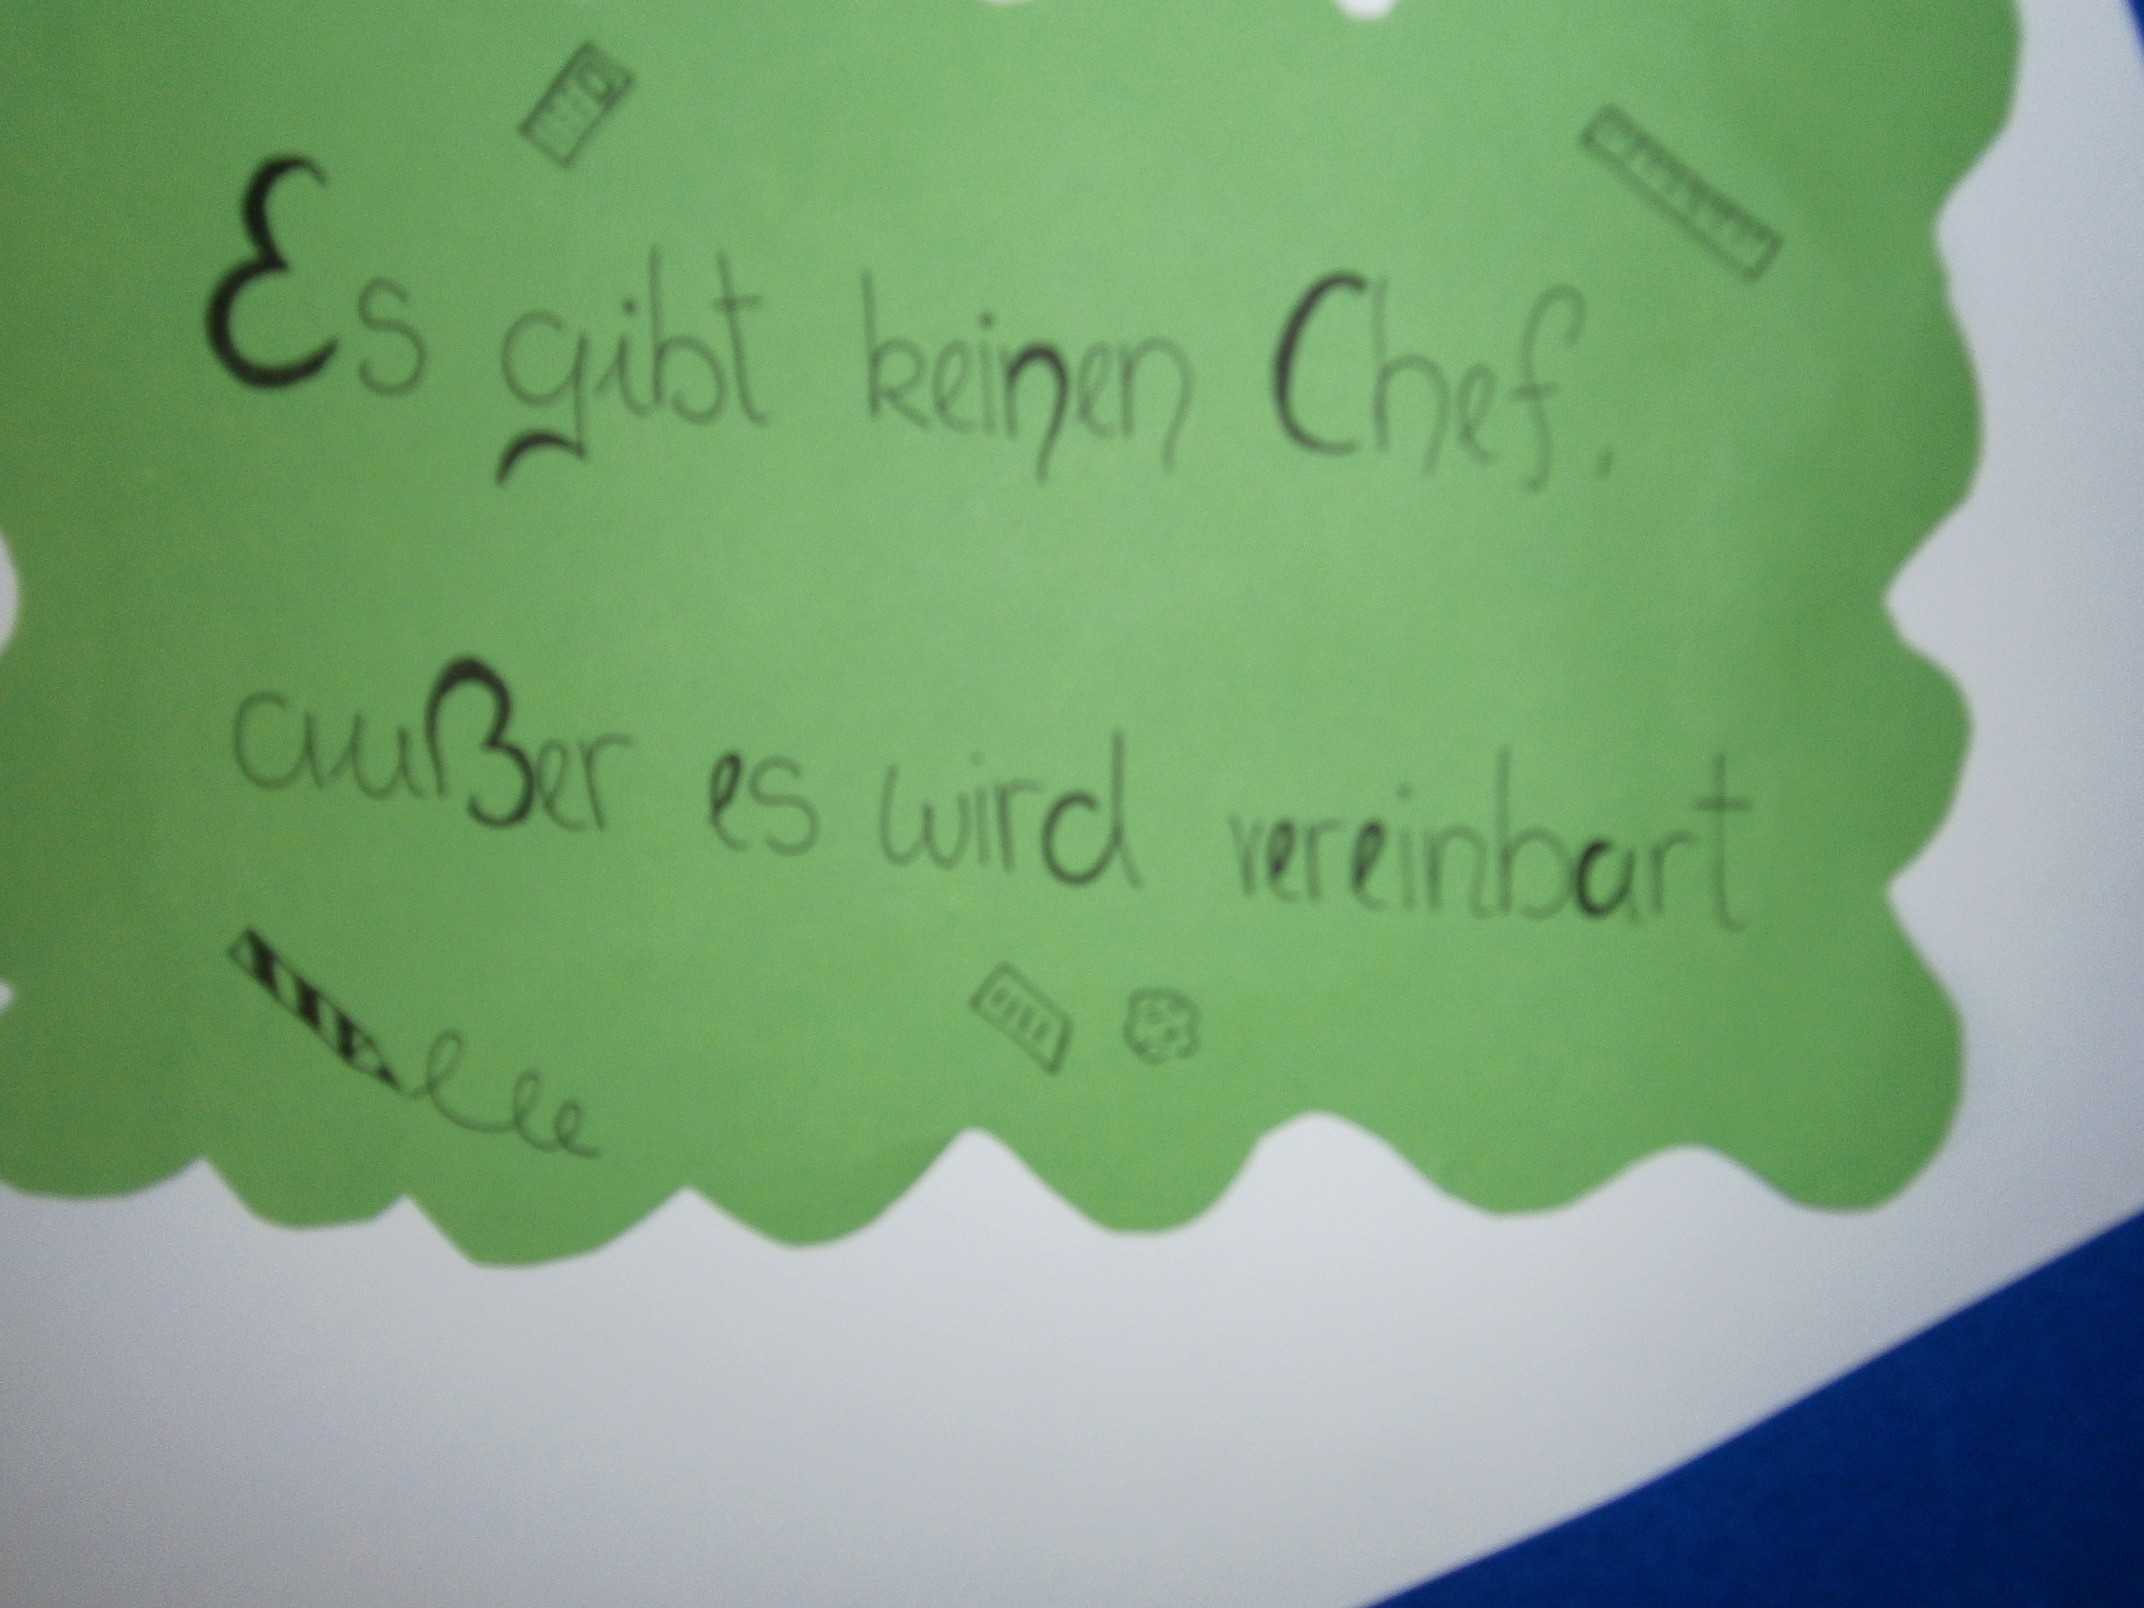 Es gibt keinen Chef.
außer es wird vereinbart